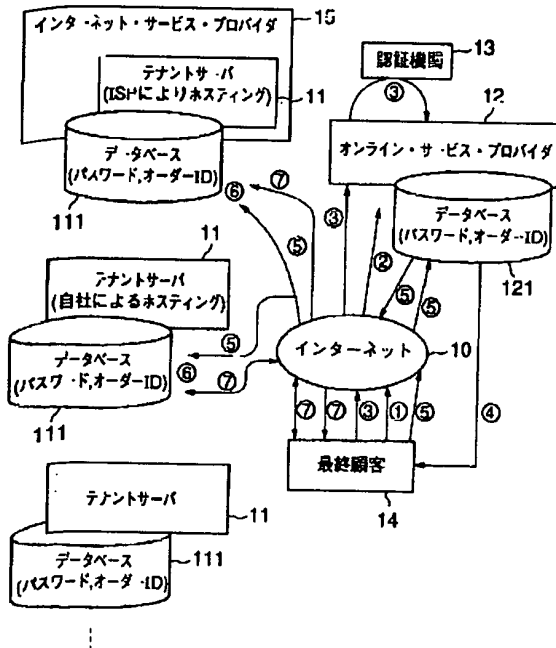 15
インターネット・サービス・プロバイダ
テナントサーバ
(ISPによりホスティング)
11
データベース
(パスワード,オーダーID)
111
13
認証機関
③
12
オンライン・サービス・プロバイダ
データベース
(パスワード,オーダーID)
121
⑥
⑦
⑤
③
②
⑤
⑤
11
テナントサーバ
(自社によるホスティング)
データベース
(パスワード,オーダーID)
111
⑤
⑥
⑦
インターネット
10
⑦
⑦
③
①
⑤
④
最終顧客
14
テナントサーバ
11
データベース
(パスワード,オーダーID)
111